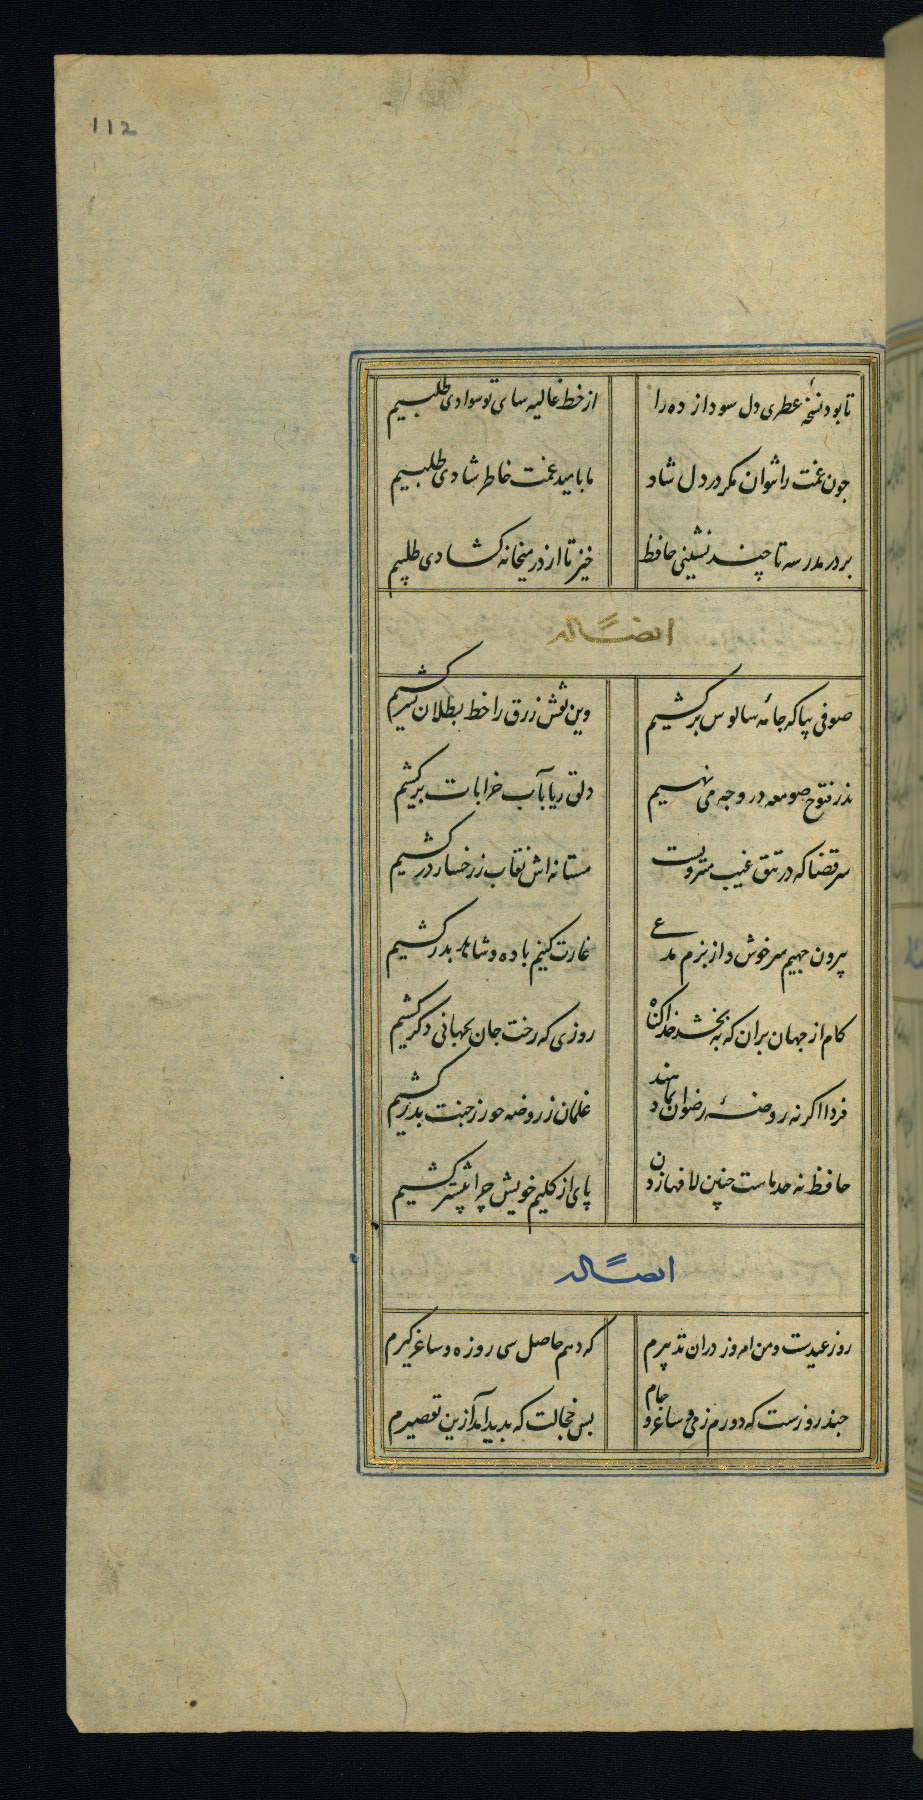 112
تا بود نسخهٔ عطری دل سودازده را از خط غالیه سای تو سوادی طلبیم
چون غمت را نتوان مکر در دل شاد ما بامید غمت خاطر شادی طلبیم
بر در مدرسه تا چند نشینی حافظ خیز تا از در میخانه کشادی طلبیم
ایضاً له
صوفی بیا که جامهٔ سالوس برکشیم وین نقش زرق را خط بطلان بسر کشیم
نذر فتوح صومعه در وجه می نهیم دلق ریا بآب خرابات برکشیم
سر قضا که در تتق غیب منزویست مستانه اش نقاب ز رخسار درکشیم
بیرون جهیم سرخوش و از بزم مدعی غارت کنیم باده و شاهد بدر کشیم
کام از جهان بران که به بخشد خدا کناه روزی که رخت جان بجهانی دکر کشیم
فردا اکر نه روضهٔ رضوان بما دهند غلمان ز روضه حور ز جنت بدر کشیم
حافظ نه حد ماست چنین لافها زدن پای از کلیم خویش چرا بیشتر کشیم
ایضاً له
روز عیدست و من امروز دران تدبیرم که دهم حاصل سی روزه و ساغر کیرم
چند روزست که دورم ز می و ساغر و جام بس خجالت که پدید آمد ازین تقصیرم